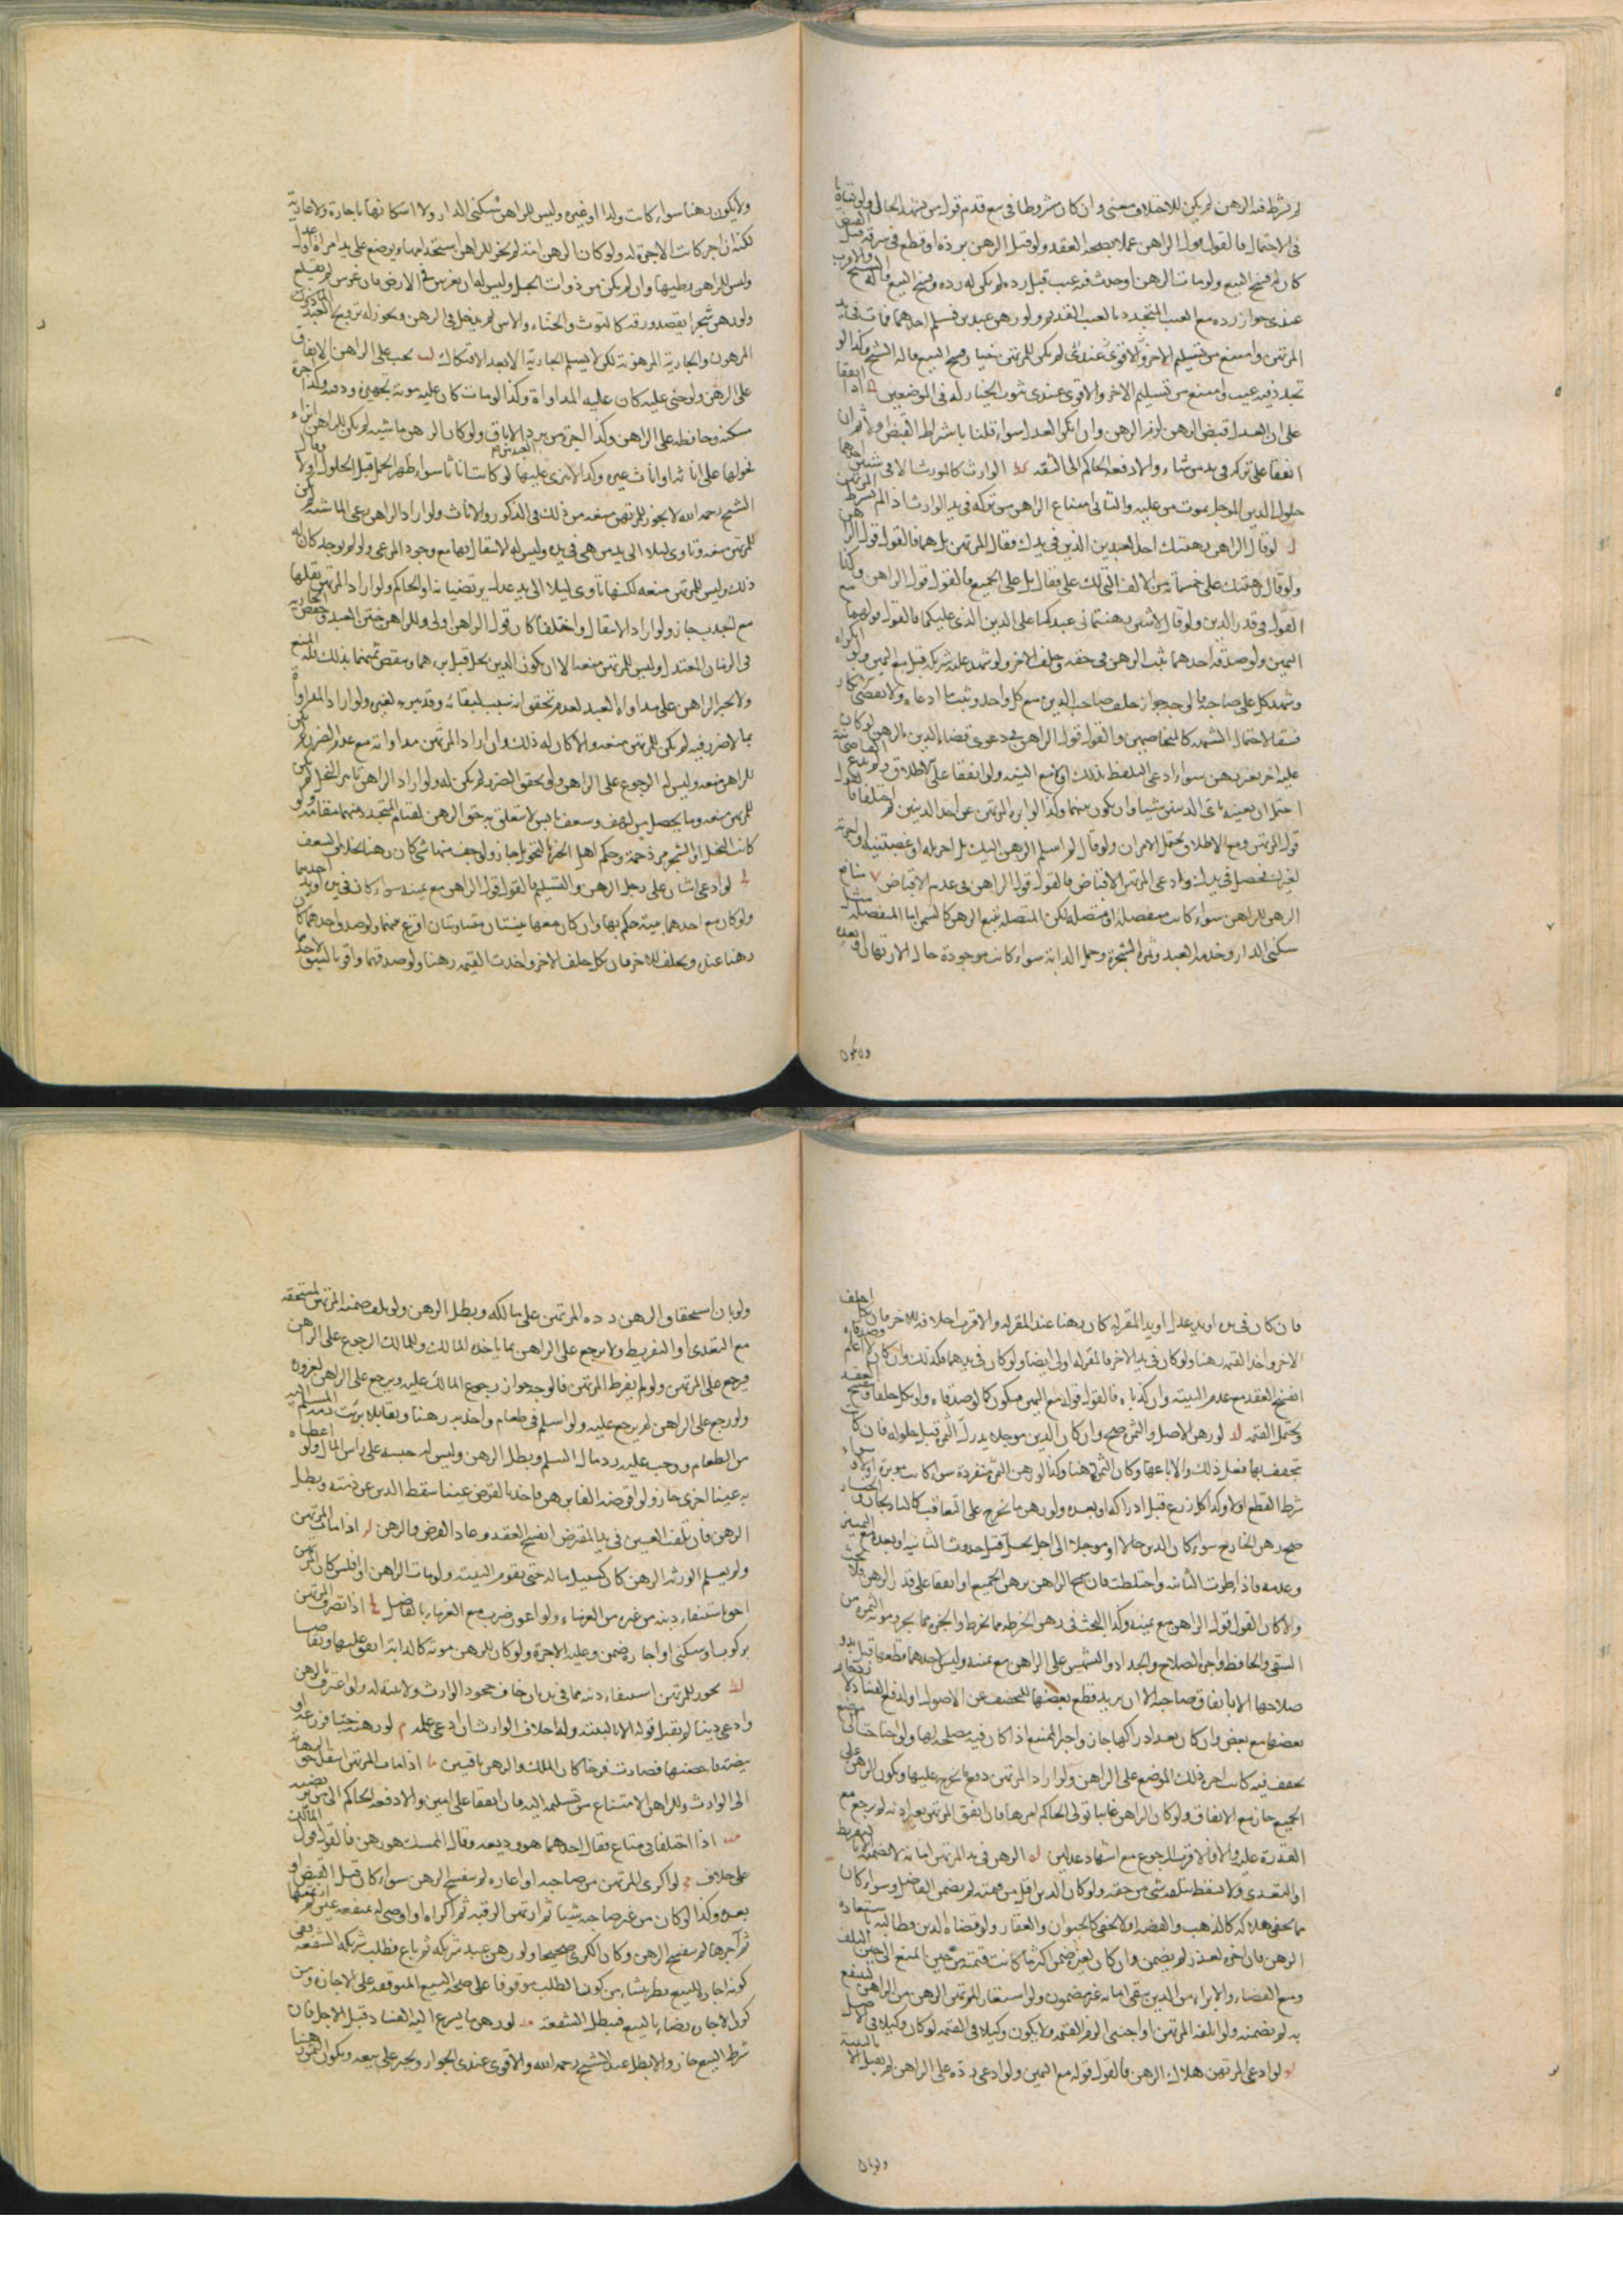 لم يشرط فيه الرهن لم يكن للاختلاف معنى وان كان مشروطا في بيع قدم قول من يشهد الحال له ولو تساويا
في الاحتمال فالقول قول الراهن عملا بصحة العقد ولو قبل الرهن بردة او قطع في سرقة قبل القبض
كان له فسخ البيع ولو مات الرهن او حدث فيه عيب قبل رده لم يكن له رده وفسخ البيع قاله الشيخ والاقرب
عندي جواز رده مع العيب المتجدد بالعيب القديم ولو رهن عبدين فسلم احدهما فمات في يد
المرتهن وامتنع من تسليم الاخر والاقوى عندي لم يكن للمرتهن خيار فسخ البيع قاله الشيخ وكذا لو
تجدد فيه عيب وامتنع من تسليم الاخر والاقوى عندي ثبوت الخيار له في الموضعين اذا اتفقا
على ان العدل قبض الرهن لزم الرهن وان انكر العدل سواء قلنا باشتراط القبض او لا ثم ان
اتفقا على تركه في يد من شاء والا دفعه الحاكم الى الثقة الوارث كالمورث الا في شيئين احدهما
حلول الدين الموجل بموت من عليه والثاني امتناع الراهن من تركه في يد الوارث اذا لم يشرط
لو قال الراهن رهنتك احد العبدين الذين في يدك فقال المرتهن بل هما فالقول قول الراهن
ولو قال رهنتك على خمسمائة من الالف التي لك علي فقال بل على الجميع فالقول قول الراهن وكذا
القول في قدر الدين ولو قال لاثنين رهنتماني عبدكما على الدين الذي عليكما فالقول قولهما مع
اليمين ولو صدقه احدهما ثبت الرهن في حقه وحلف الاخر ولو شهد على شريكه قبل مع اليمين ولو انكراه
وشهد كل على صاحبه فالوجه جواز حلف صاحب الدين مع كل واحد وثبت ما ادعاه ولا يقتضي انكار
فسقا لاحتمال الشبهة كالمتخاصمين والقول قول الراهن في دعوى قضاء الدين بالرهن لو كان
عليه اخر بغير رهن سواء ادعى التلفظ بذلك او مع النية ولو اتفقا على الاطلاق
احتمل ان يعينه باي الدينين شاء وان يكون بينهما وكذا لو ابرا المرتهن عن احد الدينين ثم اختلفا فالقول
قول المرتهن ومع الاطلاق يحتمل الامران ولو قال لم اسلم الرهن اليك بل اجرته او غصبتنيه او اجرته
لغيرك فحصل في يدك وادعى المرتهن الاقباض فالقول قول الراهن في عدم الاقباض منافع
الرهن للراهن سواء كانت منفصلة او متصلة لكن المتصلة تتبع الرهن كالسمن اما المنفصلة مثل
سكنى الدار وخدمة العبد وثمرة الشجرة وحمل الدابة سواء كانت موجودة حال الارتهان او بعده
ولا يكون
ولا يكون رهنا سواء كانت ولدا او غيره وليس للراهن سكنى الدار ولا اسكانها باجارة ولا عارية
لكنه ان اجر كانت الاجرة له ولو كان الرهن امة لم يجز للراهن استخدامها ويوضع على يد امراة عدل
وليس للراهن وطيها وان لم يكن من ذوات الحبل وليس له ان يغرس في الارض فان غرس لم يقلع
ولو رهن شجرا يقصد ورقه كالتوت والحناء والآس لم يدخل في الرهن ويجوز له تزويج العبد
المرهون والجارية المرهونة لكن لا يسلم الجارية الا بعد الافتكاك لب يجب على الراهن الانفاق
على الرهن ولو جني عليه كان عليه المداواة وكذا لو مات كان عليه مؤنة تجهيزه ودفنه وكذا اجرة
مسكنه وحافظه على الراهن وكذا اجرة من يرد الاباق ولو كان الرهن ماشية لم يكن للراهن انزاء
فحولها على اناثه او اناث غيره وكذا لا ينزى عليها لو كانت اناثا سواء ظهر الحمل قبل الحلول او لا وقال
الشيخ رحمه الله لا يجوز للمرتهن منعه من ذلك في الذكور والاناث ولو اراد الراهن رعي الماشية لم يكن
للمرتهن منعه وتاوي ليلا الى يد من هي في يده وليس له الانتقال بها مع وجود المرعى ولو لم يوجد كان له
ذلك وليس للمرتهن منعه لكنها تاوي ليلا الى يد عدل يرتضيانه او الحاكم ولو اراد المرتهن نقلها
مع الجدب جاز ولو اراد الانتقال واختلفا كان قول الراهن اولى وللراهن ختن العبد وخفض الجارية
في الزمان المعتدل وليس للمرتهن منعه الا ان يكون الدين يحل قبل برئهما وينقص ثمنهما بذلك فله المنع
ولا يجبر الراهن على مداواة العبد لعدم تحقق انه سبب لبقائه وقد يبرء بغيره ولو اراد المداواة
بما لا ضرر فيه لم يكن للمرتهن منعه والا كان له ذلك وان اراد المرتهن مداواته مع عدم الضرر لم يكن
للراهن منعه وليس له الرجوع على الراهن ولو تحقق الضرر لم يكن له ولو اراد الراهن تابير النخل لم يكن
للمرتهن منعه وما يحصل من ليف وسعف يابس لا يتعلق به حق الرهن لقيام المتجدد منهما مقامه ولو
كانت النخل او الشجر مزدحمة وحكم اهل الخبرة بالتحويل جاز ولو جف منها شيء كان رهنا بخلاف السعف
لو ادعى اثنان على رجل الرهن والتسليم فالقول قول الراهن مع يمينه سواء كان في يد احدهما
ولو كان مع احدهما بينة حكم بها وان كان معهما بينتان متساويتان اقرع بينهما ولو صدق احدهما كان
رهنا عنده ويحلف للاخر فان نكل حلف الاخر واخذت القيمة رهنا ولو صدقهما واقر بالسبق لاحدهما
فان كان في يده او يد عدل او يد المقر له كان رهنا عند المقر له والاقرب احلافه للاخر فان نكل احلف
الاخر واخذ القيمة رهنا ولو كان في يد الاخر فالمقر له اولى ايضا ولو كان في يدهما فكذلك وان كان
انفسخ العقد مع عدم البينة وان كذباه فالقول قوله مع اليمين فيكون كما لو صدقاه ولو نكل حلفا وفسخ العقد
ويحتمل القسمة لد لو رهن الاصل والثمر صح وان كان الدين موجلا يدرك الثمر قبل حلوله فان كان
تجفف بها فعل ذلك والا باعها وكان الثمن رهنا وكذا لو رهن الثمرة منفردة سواء كانت موبرة او لا وسواء
شرط القطع او لا وكذا كل زرع قبل ادراكه او بعده ولو رهن ما يخرج على التعاقب كالباذنجان والخيار
صح رهن الخارج سواء كان الدين حالا او موجلا الى اجل يحل قبل حدوث الثانية او بعده مع التميز
وعدمه فاذا ظهرت الثانية واختلطت فان سمح الراهن برهن الجميع او اتفقا على قدر الرهن فلا بحث
والا كان القول قول الراهن مع يمينه وكذا البحث في رهن الخرطة مما يخرط والجزة مما يجز ومؤنة الثمرة من
السقي والحافظ واجرة الاصلاح والجداد والتشميس على الراهن مع يمينه وليس لاحدهما قطعها قبل بدو
صلاحها الا باتفاق صاحبه الا ان يريد قطع بعضها للتخفيف عن الاصول او لدفع الفساد
بعضها مع بعض وان كان بعد ادراكها جاز واجبر الممتنع اذا كان فيه مصلحة لها ولو احتاجت الى موضع
تجفف فيه كانت اجرة ذلك الموضع على الراهن ولو اراد المرتهن دفع ما يخرج عليها ويكون الرهن على
الجميع جاز مع الاتفاق ولو كان الراهن غائبا تولى الحاكم امرها فان انفق المرتهن بغير اذنه لم يرجع مع
القدرة عليه والا فالاقرب الرجوع مع اشهاد عدلين له الرهن في يد المرتهن امانة لا يضمنه الا بالتفريط
او التعدي ولا يسقط بتلفه شيء من حقه ولو كان الدين اقل من قيمته لم يضمن الفاضل وسواء كان
مما يخفى هلاكه كالذهب والفضة او لا يخفى كالحيوان والعقار ولو قضاه الدين وطالبه باستعادة
الرهن فان اخر لعذر لم يضمن وان كان لغيره ضمن اكثر ما كانت قيمته من حين المنع الى حين التلف
ومع القضاء والابراء من الدين يبقى امانة غير مضمون ولو استعار المرتهن الرهن من الراهن لينتفع
به لم يضمنه ولو اتلفه المرتهن او اجنبي الزم القيمة ولا يكون وكيلا في القيمة لو كان وكيلا في الاصل
لو ادعى المرتهن هلاك الرهن فالقول قوله مع اليمين ولو ادعى رده على الراهن لم يقبل الا بالبينة
ولو بان
ولو بان استحقاق الرهن رده المرتهن على مالكه وبطل الرهن ولو تلف ضمنه المرتهن لمستحقه
مع التعدي او التفريط ولا يرجع على الراهن بما ياخذه المالك وللمالك الرجوع على الراهن
فيرجع على المرتهن ولو لم يفرط المرتهن فالوجه جواز رجوع المالك عليه ويرجع على الراهن لغروره
ولو رجع على الراهن لم يرجع عليه ولو اسلم في طعام واخذ به رهنا وتقايلا برئت ذمة المسلم اليه
من الطعام ووجب عليه رد مال السلم وبطل الرهن وليس له حبسه على راس المال ولو اعطاه
به عينا اخرى جاز ولو اقرضه الفا برهن فاخذ بالقرض عينا سقط الدين عن ذمته وبطل
الرهن فان تلفت العين في يد المقرض انفسخ العقد وعاد القرض والرهن لز اذا مات المرتهن
ولم يعلم الورثة الرهن كان كسبيل ماله حتى تقوم البينة ولو مات الراهن او افلس كان المرتهن
احق باستيفاء دينه من غيره من الغرماء ولو اعوز ضرب مع الغرماء بالفاضل لح اذا تصرف المرتهن
بركوب او سكنى او اجارة ضمن وعليه الاجرة ولو كان للرهن مؤنة كالدابة انفق عليها وتقاصا
لط يجوز للمرتهن استيفاء دينه مما في يده ان خاف جحود الوارث ولا بينة له ولو اعترف بالرهن
وادعى دينا لم يقبل قوله الا بالبينة وله احلاف الوارث ان ادعى علمه م لو رهنه حبا فزرعه او
بيضة فاحضنها فصارت فرخا كان الملك والرهن باقيين ما اذا مات المرتهن انتقل حق الرهانة
الى الوارث وللراهن الامتناع من تسليمه اليه فان اتفقا على امين والا دفعه الحاكم الى من يرتضيه
مب اذا اختلفا في متاع فقال احدهما هو وديعة وقال الممسك هو رهن فالقول قول المالك
على خلاف مج لو اكرى المرتهن من صاحبه او اعاره لم ينفسخ الرهن سواء كان قبل القبض او
بعده وكذا لو كان من غير صاحبه شيئا ثم ارتهن الرقبة ثم اكراه او اوصي له بمنفعة عين
ثم آجرها لم ينفسخ الرهن وكان الكرى صحيحا ولو رهن عبد شريكه ثم باع فطلب شريكه الشفعة ففي
كونه اجازة للبيع نظر ينشا من كون الطلب موقوفا على صحة البيع المتوقفة على الاجازة ومن
كون الاجازة رضاء بالبيع فتبطل الشفعة مد لو رهن ما يسرع اليه الفساد قبل الاجل فان
شرط البيع جاز والا بطل عند الشيخ رحمه الله والاقوى عندي الجواز ويجبر على بيعه ويكون الثمن رهنا